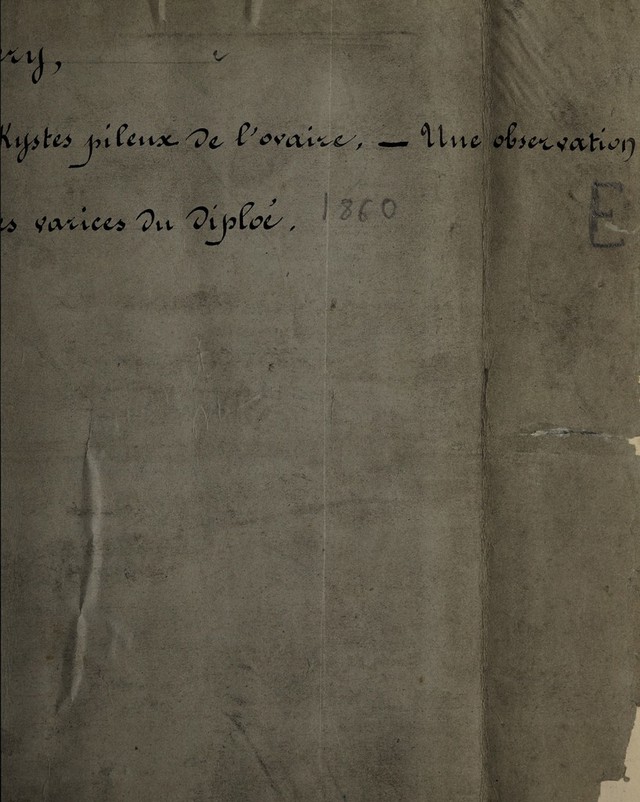 ry,
Kystes pileux de l'ovaire. — Une observation
es varices du Diploé. 1860
E